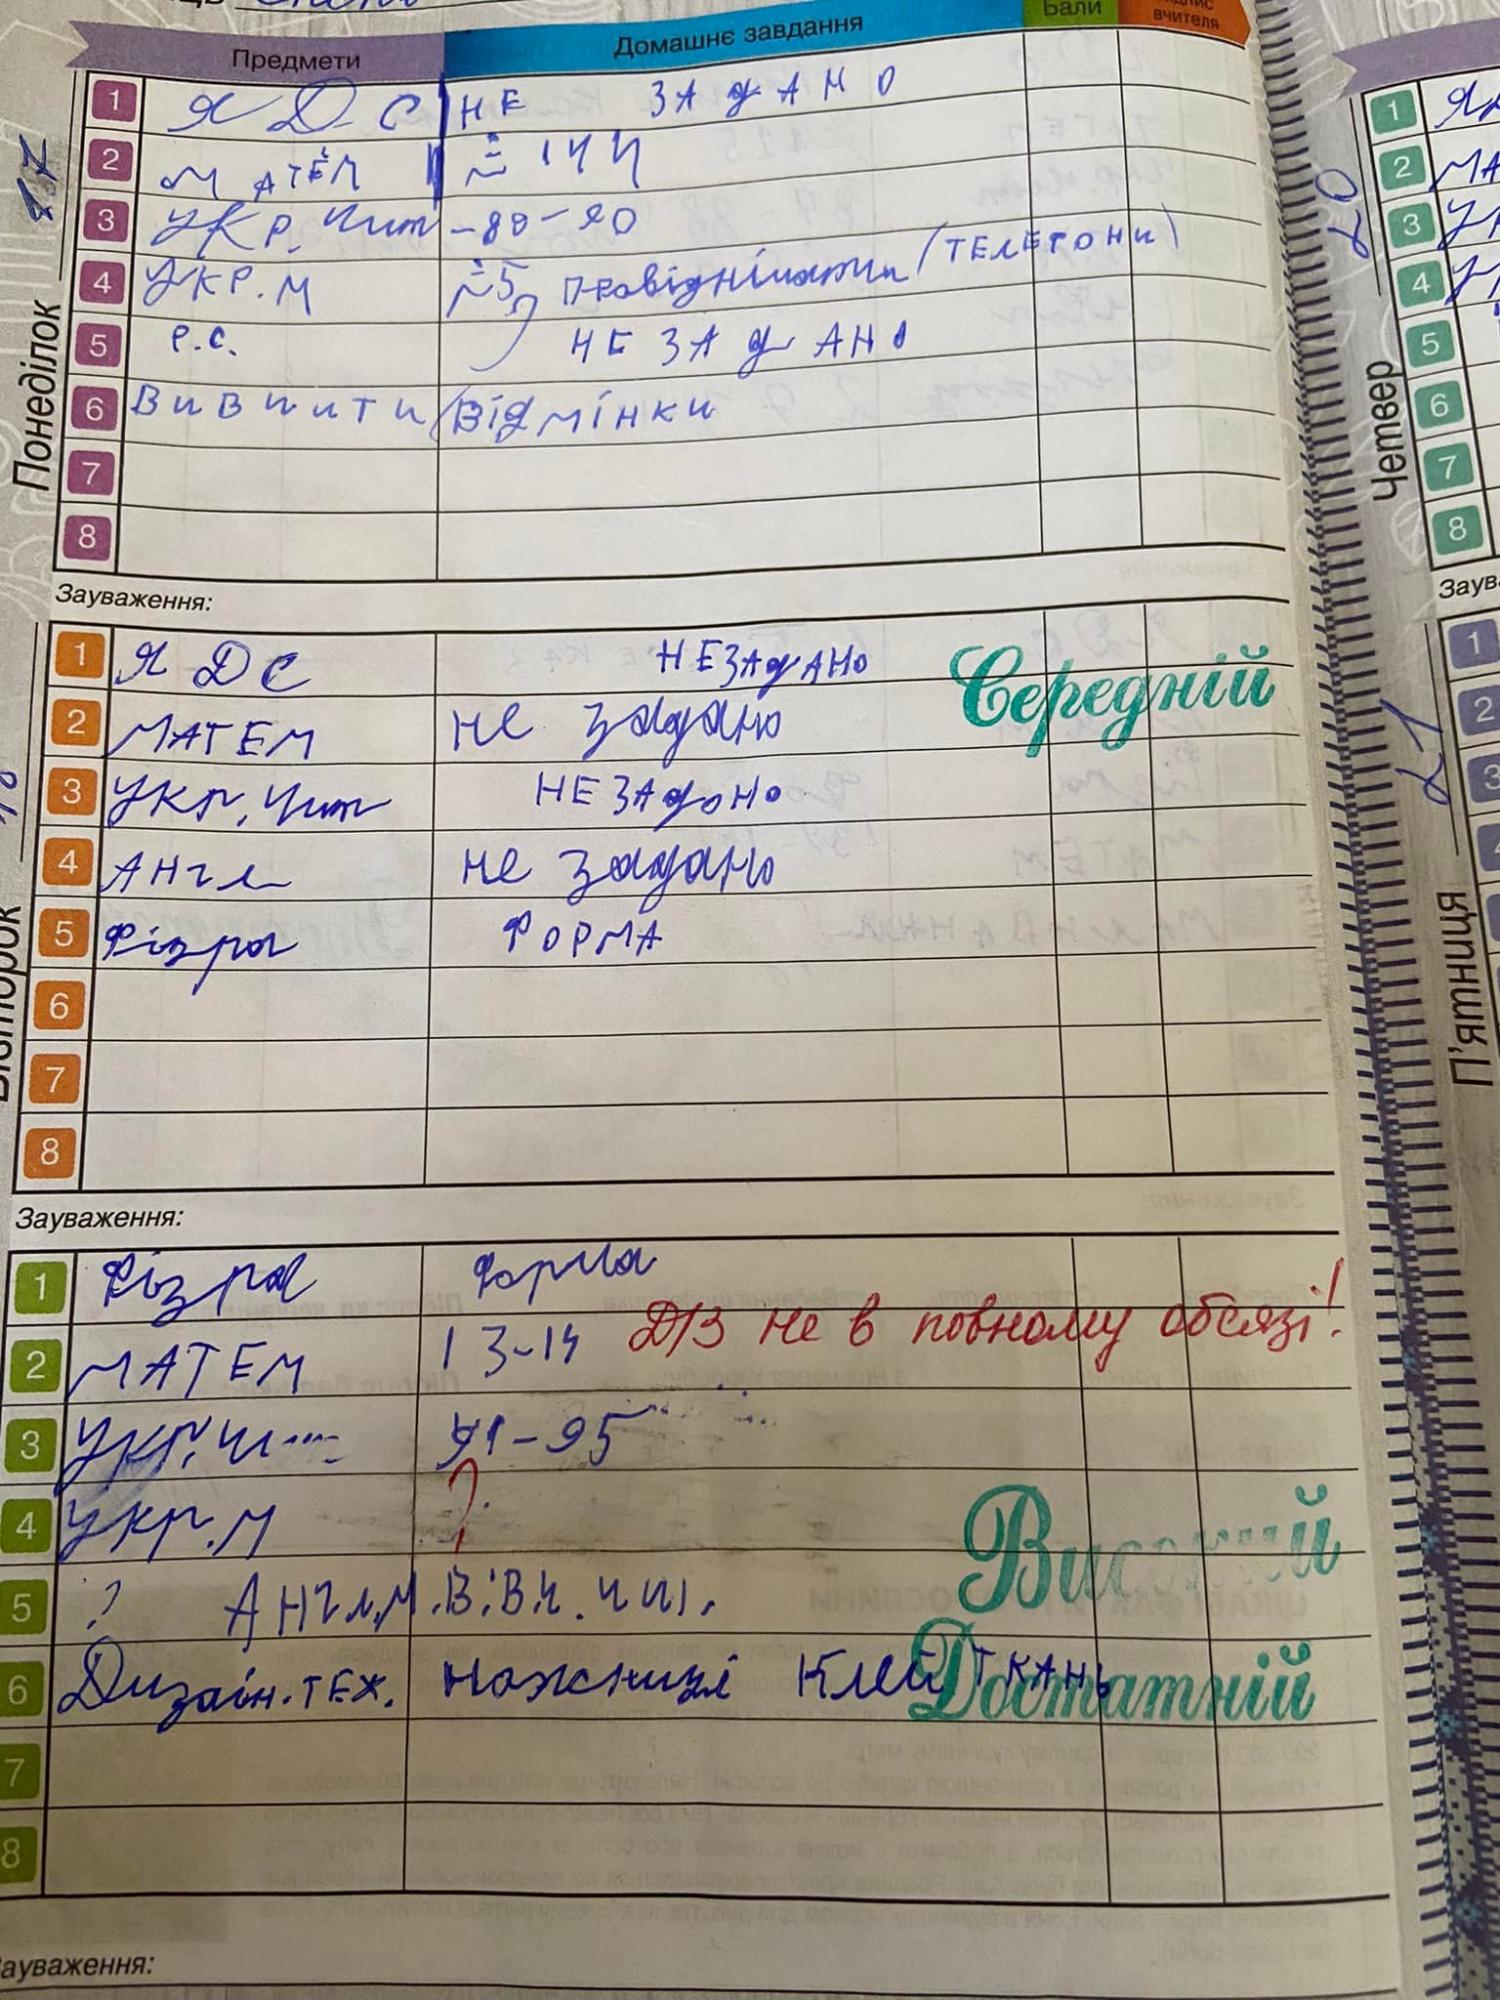 Предмети Домашнє завдання Бали вчителя
17
Понеділок
1 Я Д С НЕ ЗАДАНО
2 МАТЕМ № 144
3 УКР. Чит -80-90
4 УКР.М №5, провідміняти (ТЕЛЕФОНИ)
5 Р.С. НЕ ЗАДАНО
6 ВИВЧИТИ ВІДМІНКИ
7
8
Зауваження:
1 Я Д С НЕ ЗАДАНО Середній
2 МАТЕМ не задано
3 УКР. Чит НЕ ЗАДОНО
4 Англ не задано
5 Фізра ФОРМА
6
7
8
Зауваження:
1 Фізра форма
2 МАТЕМ 13-14 Д/З не в повному обсязі!
3 УКР. Ч 91-95
4 УКР.М ?
Високий
5 ? Англ.М.В:ВЧ.ЧИ.
6 Дизайн.ТЕХ. Ножниці Клей ТКАНЬ
Достатній
7
8
Зауваження:
20
Четвер
1 ЯД
2 МА
3 У
4 У
5
6
7
8
Заув
21
П'ятниця
1
2
3